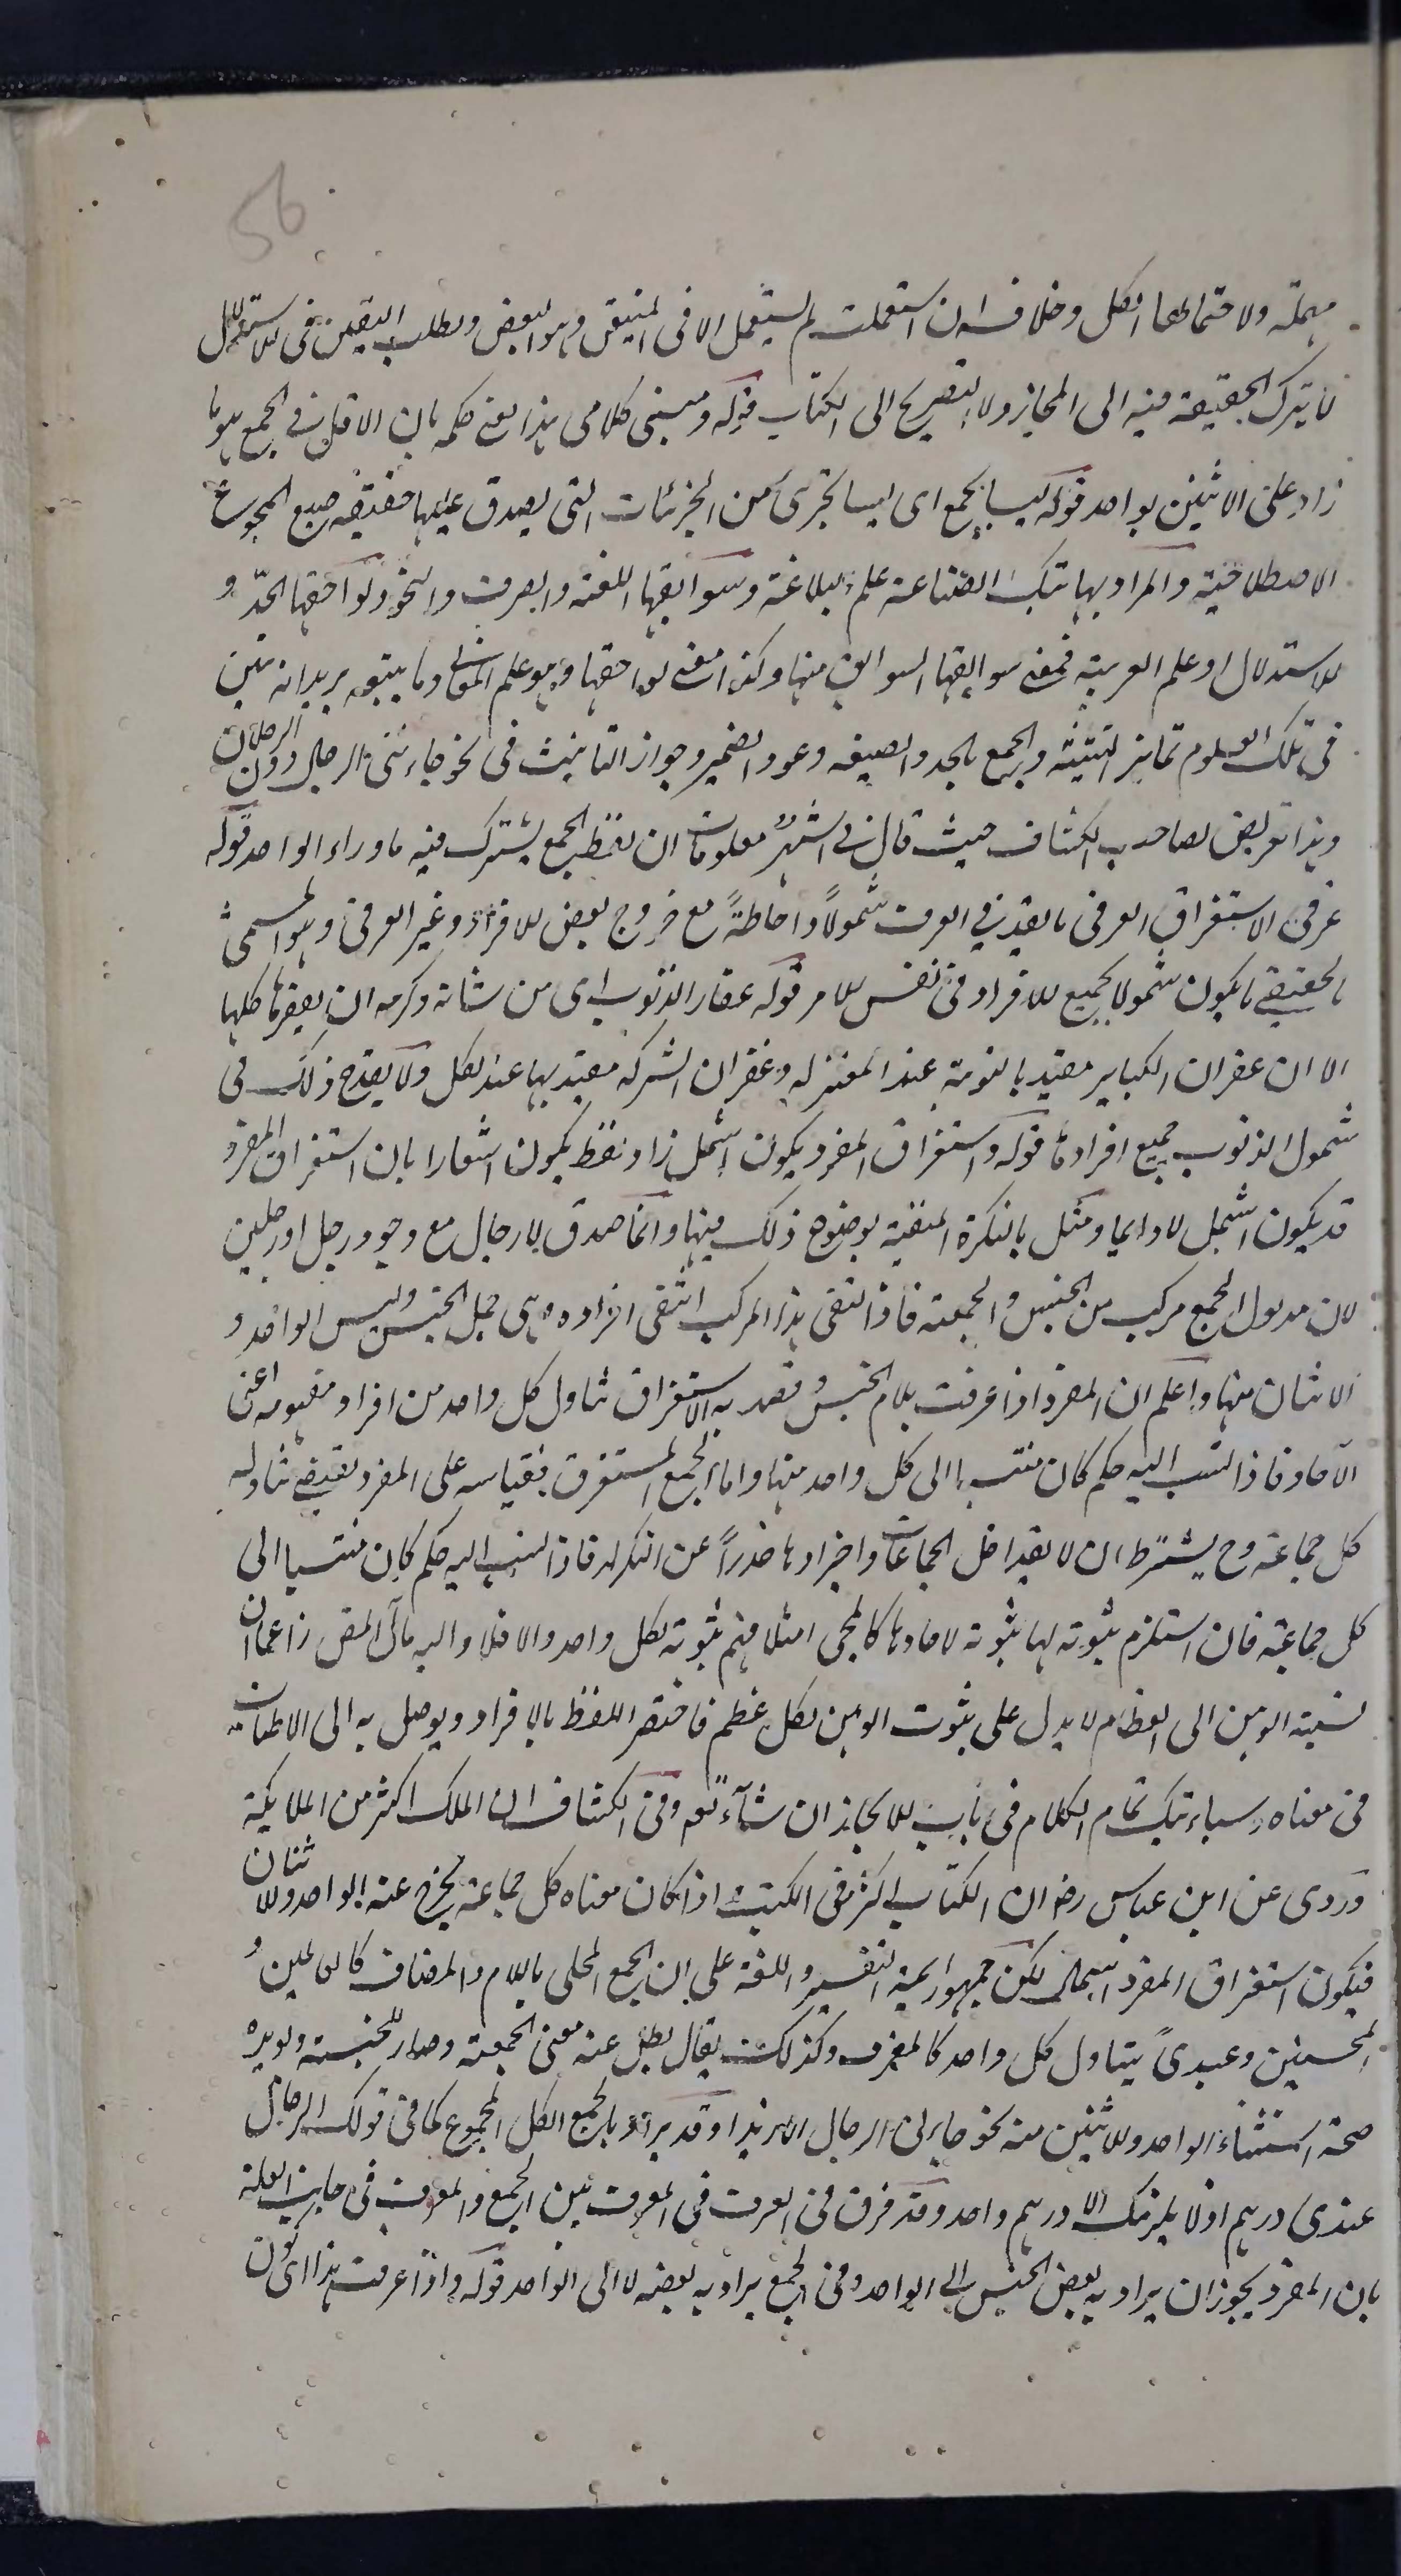 56
مهملة ولاحتمالها الكل وخلافه ان استعملت لم يستعمل الا فى المتيقن وهو البعض ويطلب اليقين فى الاستدلال
لا يترك الحقيقة فيه الى المجاز ولا التصريح الى الكناية قوله ومبنى كلامى هذا يعنى حكمه بان الاقل فى الجمع هو ما
زاد على الاثنين بواحد قوله ليسا بجمع اى ليسا بجزئى من الجزئيات التى يصدق عليها حقيقة صيغ الجموع
الاصطلاحية والمراد بهاتيك الصناعة علم البلاغة وسوابقها اللغة والصرف والنحو ولواحقها الحدّ و
الاستدلال او علم العربية فمعنى سوابقها السوابق منها وكذا معنى لواحقها وهو علم المعانى وما يتبعه يريد انه تبين
فى تلك العلوم تمايز التثنية والجمع بالحد والصيغة وعود الضمير وجواز التانيث فى نحو جاءتنى الرجال دون الرجلان
وهذا تعريض لصاحب الكشاف حيث قال فى اشهر معلومات ان لفظ الجمع يشترك فيه ما وراء الواحد قوله
عرفى الاستغراق العرفى ما يعدّ فى العرف شمولاً واحاطةً مع خروج بعض الافراد وغير العرفى وهو المسمى
بالحقيقى ما يكون شمولا لجميع الافراد فى نفس الامر قوله غفار الذنوب اى من شانه وكرمه ان يغفرها كلها
الا ان غفران الكباير مقيد بالتوبة عند المعتزله وغفران الشرك مقيد بها عند الكل ولا يقدح ذلك فى
شمول الذنوب جميع افرادها قوله واستغراق المفرد يكون اشمل زاد لفظ يكون اشعارا بان استغراق المفرد
قد يكون اشمل لا دايما ومثل بالنكرة المنفية لوضوح ذلك فيها وانما صدق لا رجال مع وجود رجل او رجلين
لان مدلول الجمع مركب من الجنس والجمعية فاذا انتفى هذا المركب انتفى افراده وهى جمل الجنس وليس الواحد و
الاثنان منها واعلم ان المفرد اذا عرفت بلام الجنس وقصد به الاستغراق تناول كل واحد من افراد مفهومه اعنى
الآحاد فاذا انتسب اليه حكم كان منتسبا الى كل واحد منها واما الجمع المستغرق فقياسه على المفرد يقتضى تناوله
كل جماعة وح يشترط ان لا يتداخل الجماعات واجزاؤها حذراً عن التكرار فاذا انتسب اليه حكم كان منتسبا الى
كل جماعة فان استلزم ثبوته لها ثبوته لآحادها كالمجى مثلا فهم ثبوته لكل واحد والا فلا واليه مآل المص زاعما ان
نسبة الوهن الى العظام لا يدل على ثبوت الوهن لكل عظم فاختصر اللفظ بالافراد ويوصل به الى الاطناب
فى معناه وسياتيك تمام الكلام فى باب الايجاز ان شآء تعه وفى الكشاف ان الملك اكثر من الملايكة
وروى عن ابن عباس رضه ان الكتاب اكثر فى الكتب واذا كان معناه كل جماعة يخرج عنه الواحد والاثنان
فيكون استغراق المفرد اشمل لكن جمهور ايمة التفسير واللغة على ان الجمع المحلى باللام والمضاف كالعالمين و
المحسنين وعبيدى يتناول كل واحد كالمفرد وكذلك يقال بطل عنه معنى الجمعية وصار للجنسية ويويده
صحة استثناء الواحد والاثنين منه نحو جاءنى الرجال الا زيدا وقد يراد بالجمع الكل المجموع كما فى قولك للرجال
عندى درهم اذ لا يلزمك الا درهم واحد وقد فرق فى العرف فى المعرف بين الجمع والمعرف فى جانب القلة
بان المفرد يجوز ان يراد به بعض الجنس الى الواحد وفى الجمع يراد به بعضه لا الى الواحد قوله واذا عرفت هذا اى كون